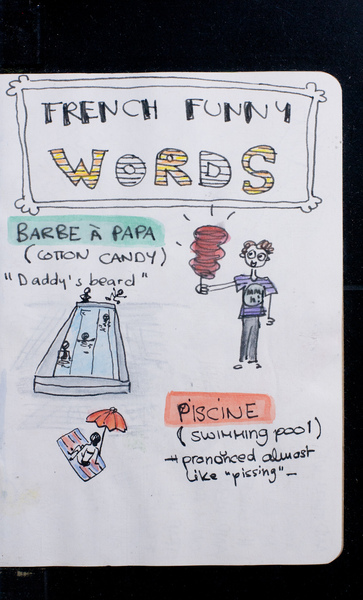 FRENCH FUNNY
WORDS
BARBE À PAPA
(COTON CANDY)
"Daddy's beard"
PISCINE
(SWIMMING POOL)
→ pronounced almost
like "pissing" -